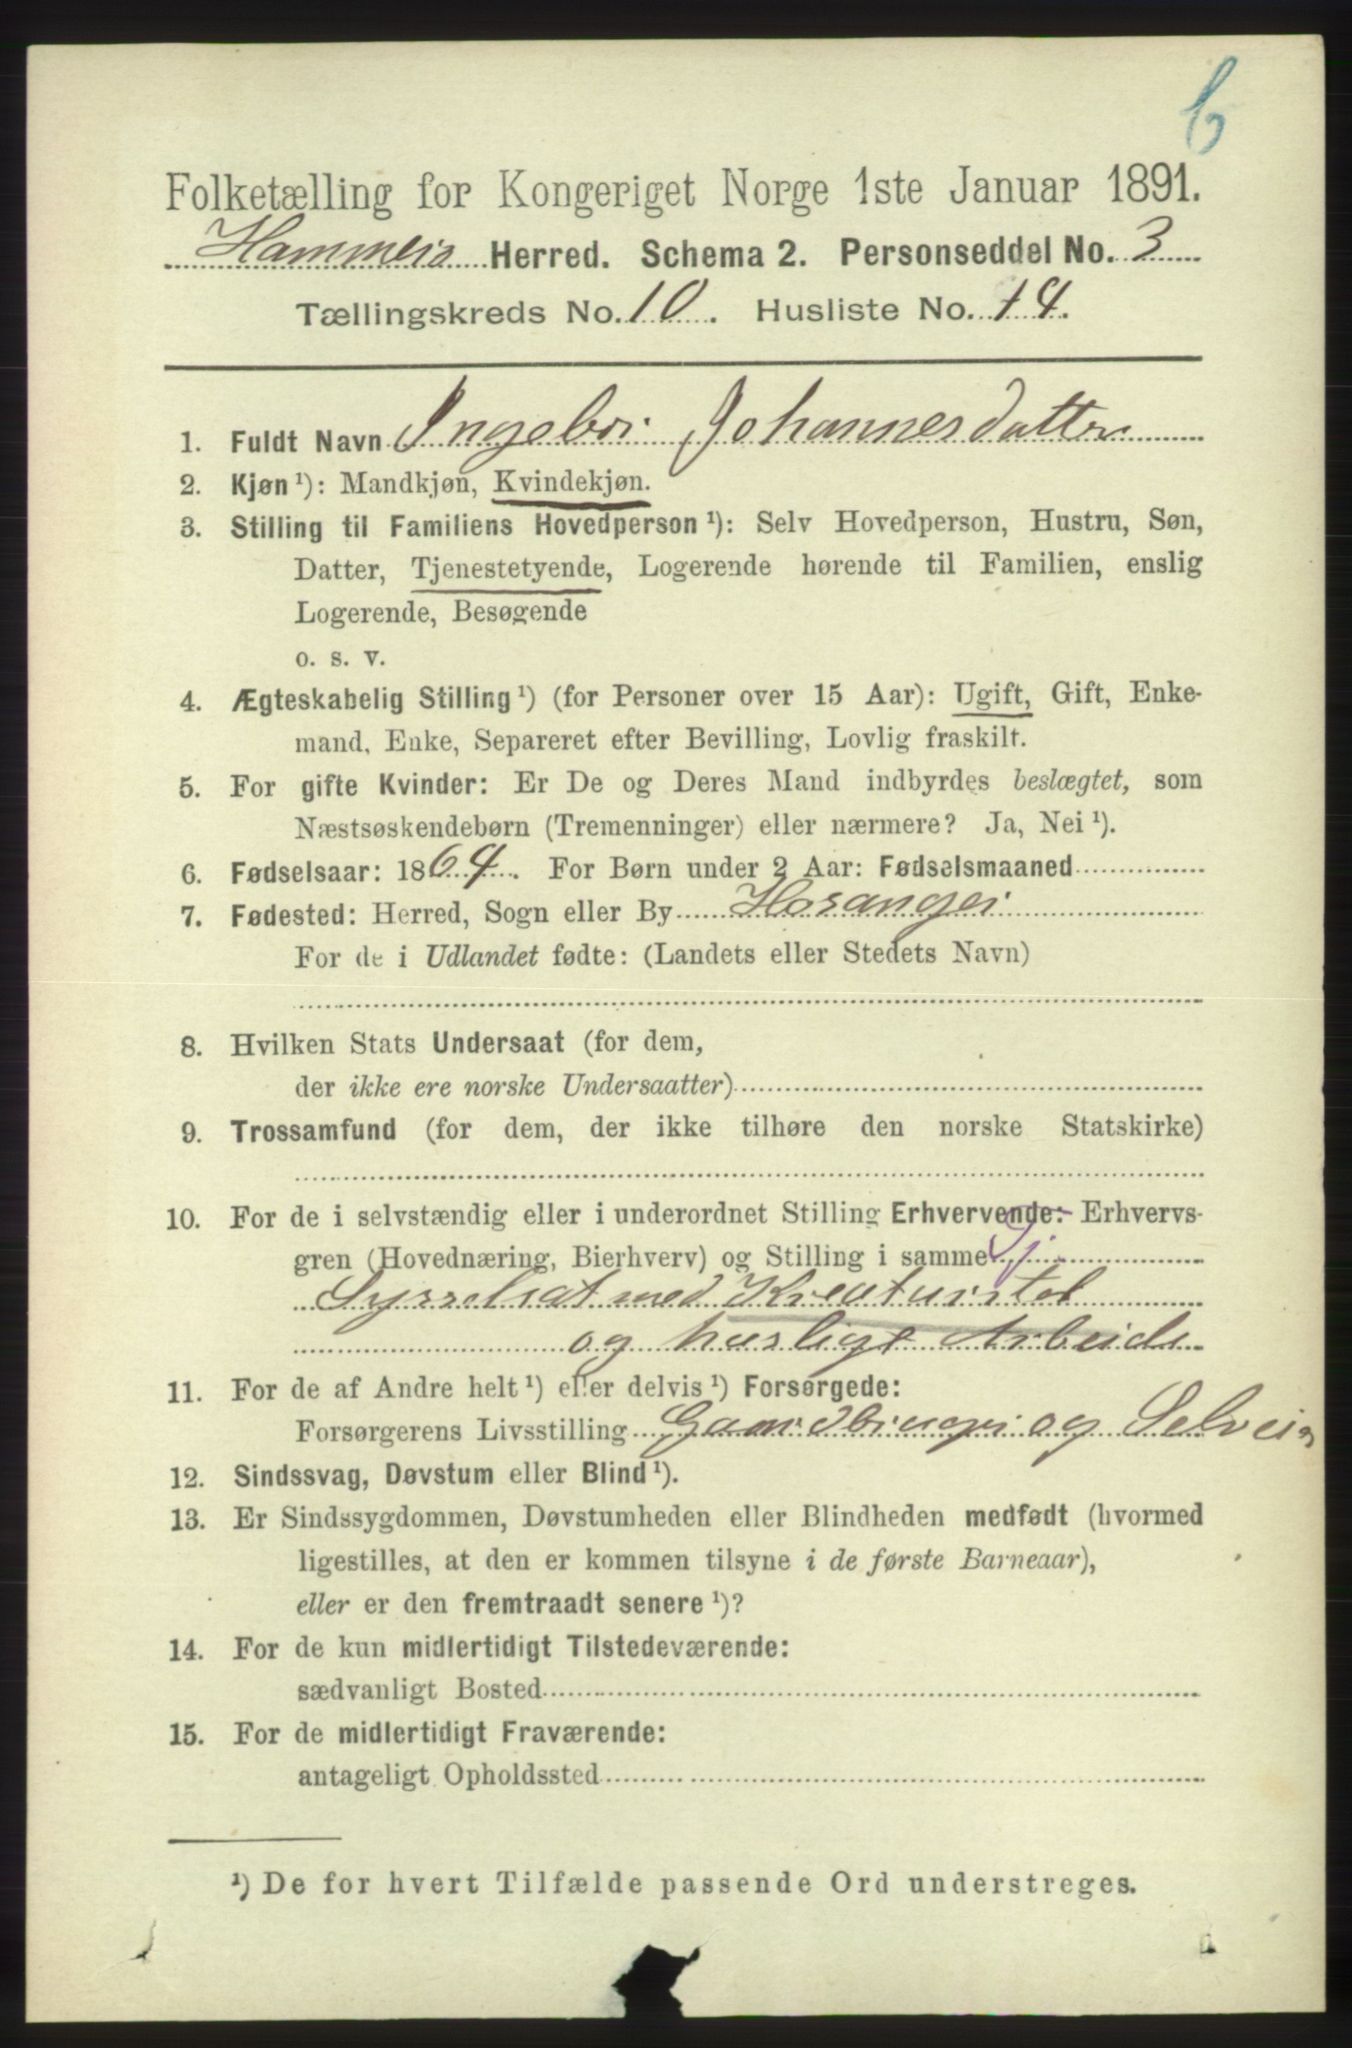 6
Folketælling for Kongeriget Norge 1ste Januar 1891.
Hammers Herred. Schema 2. Personseddel No. 3
Tællingskreds No. 10. Husliste No. 14.
1. Fuldt Navn Ingebor Johannesdatter
2. Kjøn ¹): Mandkjøn, Kvindekjøn.
3. Stilling til Familiens Hovedperson ¹): Selv Hovedperson, Hustru, Søn,
Datter, Tjenestetyende, Logerende hørende til Familien, enslig
Logerende, Besøgende
o. s. v.
4. Ægteskabelig Stilling ¹) (for Personer over 15 Aar): Ugift, Gift, Enke-
mand, Enke, Separeret efter Bevilling, Lovlig fraskilt.
5. For gifte Kvinder: Er De og Deres Mand indbyrdes beslægtet, som
Næstsøskendebørn (Tremenninger) eller nærmere? Ja, Nei ¹).
6. Fødselsaar: 1864. For Børn under 2 Aar: Fødselsmaaned
7. Fødested: Herred, Sogn eller By Hosanger
For de i Udlandet fødte: (Landets eller Stedets Navn)
8. Hvilken Stats Undersaat (for dem,
der ikke ere norske Undersaatter)
9. Trossamfund (for dem, der ikke tilhøre den norske Statskirke)
10. For de i selvstændig eller i underordnet Stilling Erhvervende: Erhvervs-
gren (Hovednæring, Bierhverv) og Stilling i samme
Sysselsat med Kreaturstel
og huslige Arbeide
11. For de af Andre helt ¹) eller delvis ¹) Forsørgede:
Forsørgerens Livsstilling Gaardbruger og Selveier
12. Sindssvag, Døvstum eller Blind ¹).
13. Er Sindssygdommen, Døvstumheden eller Blindheden medfødt (hvormed
ligestilles, at den er kommen tilsyne i de første Barneaar),
eller er den fremtraadt senere ¹)?
14. For de kun midlertidigt Tilstedeværende:
sædvanligt Bosted
15. For de midlertidigt Fraværende:
antageligt Opholdssted
¹) De for hvert Tilfælde passende Ord understreges.